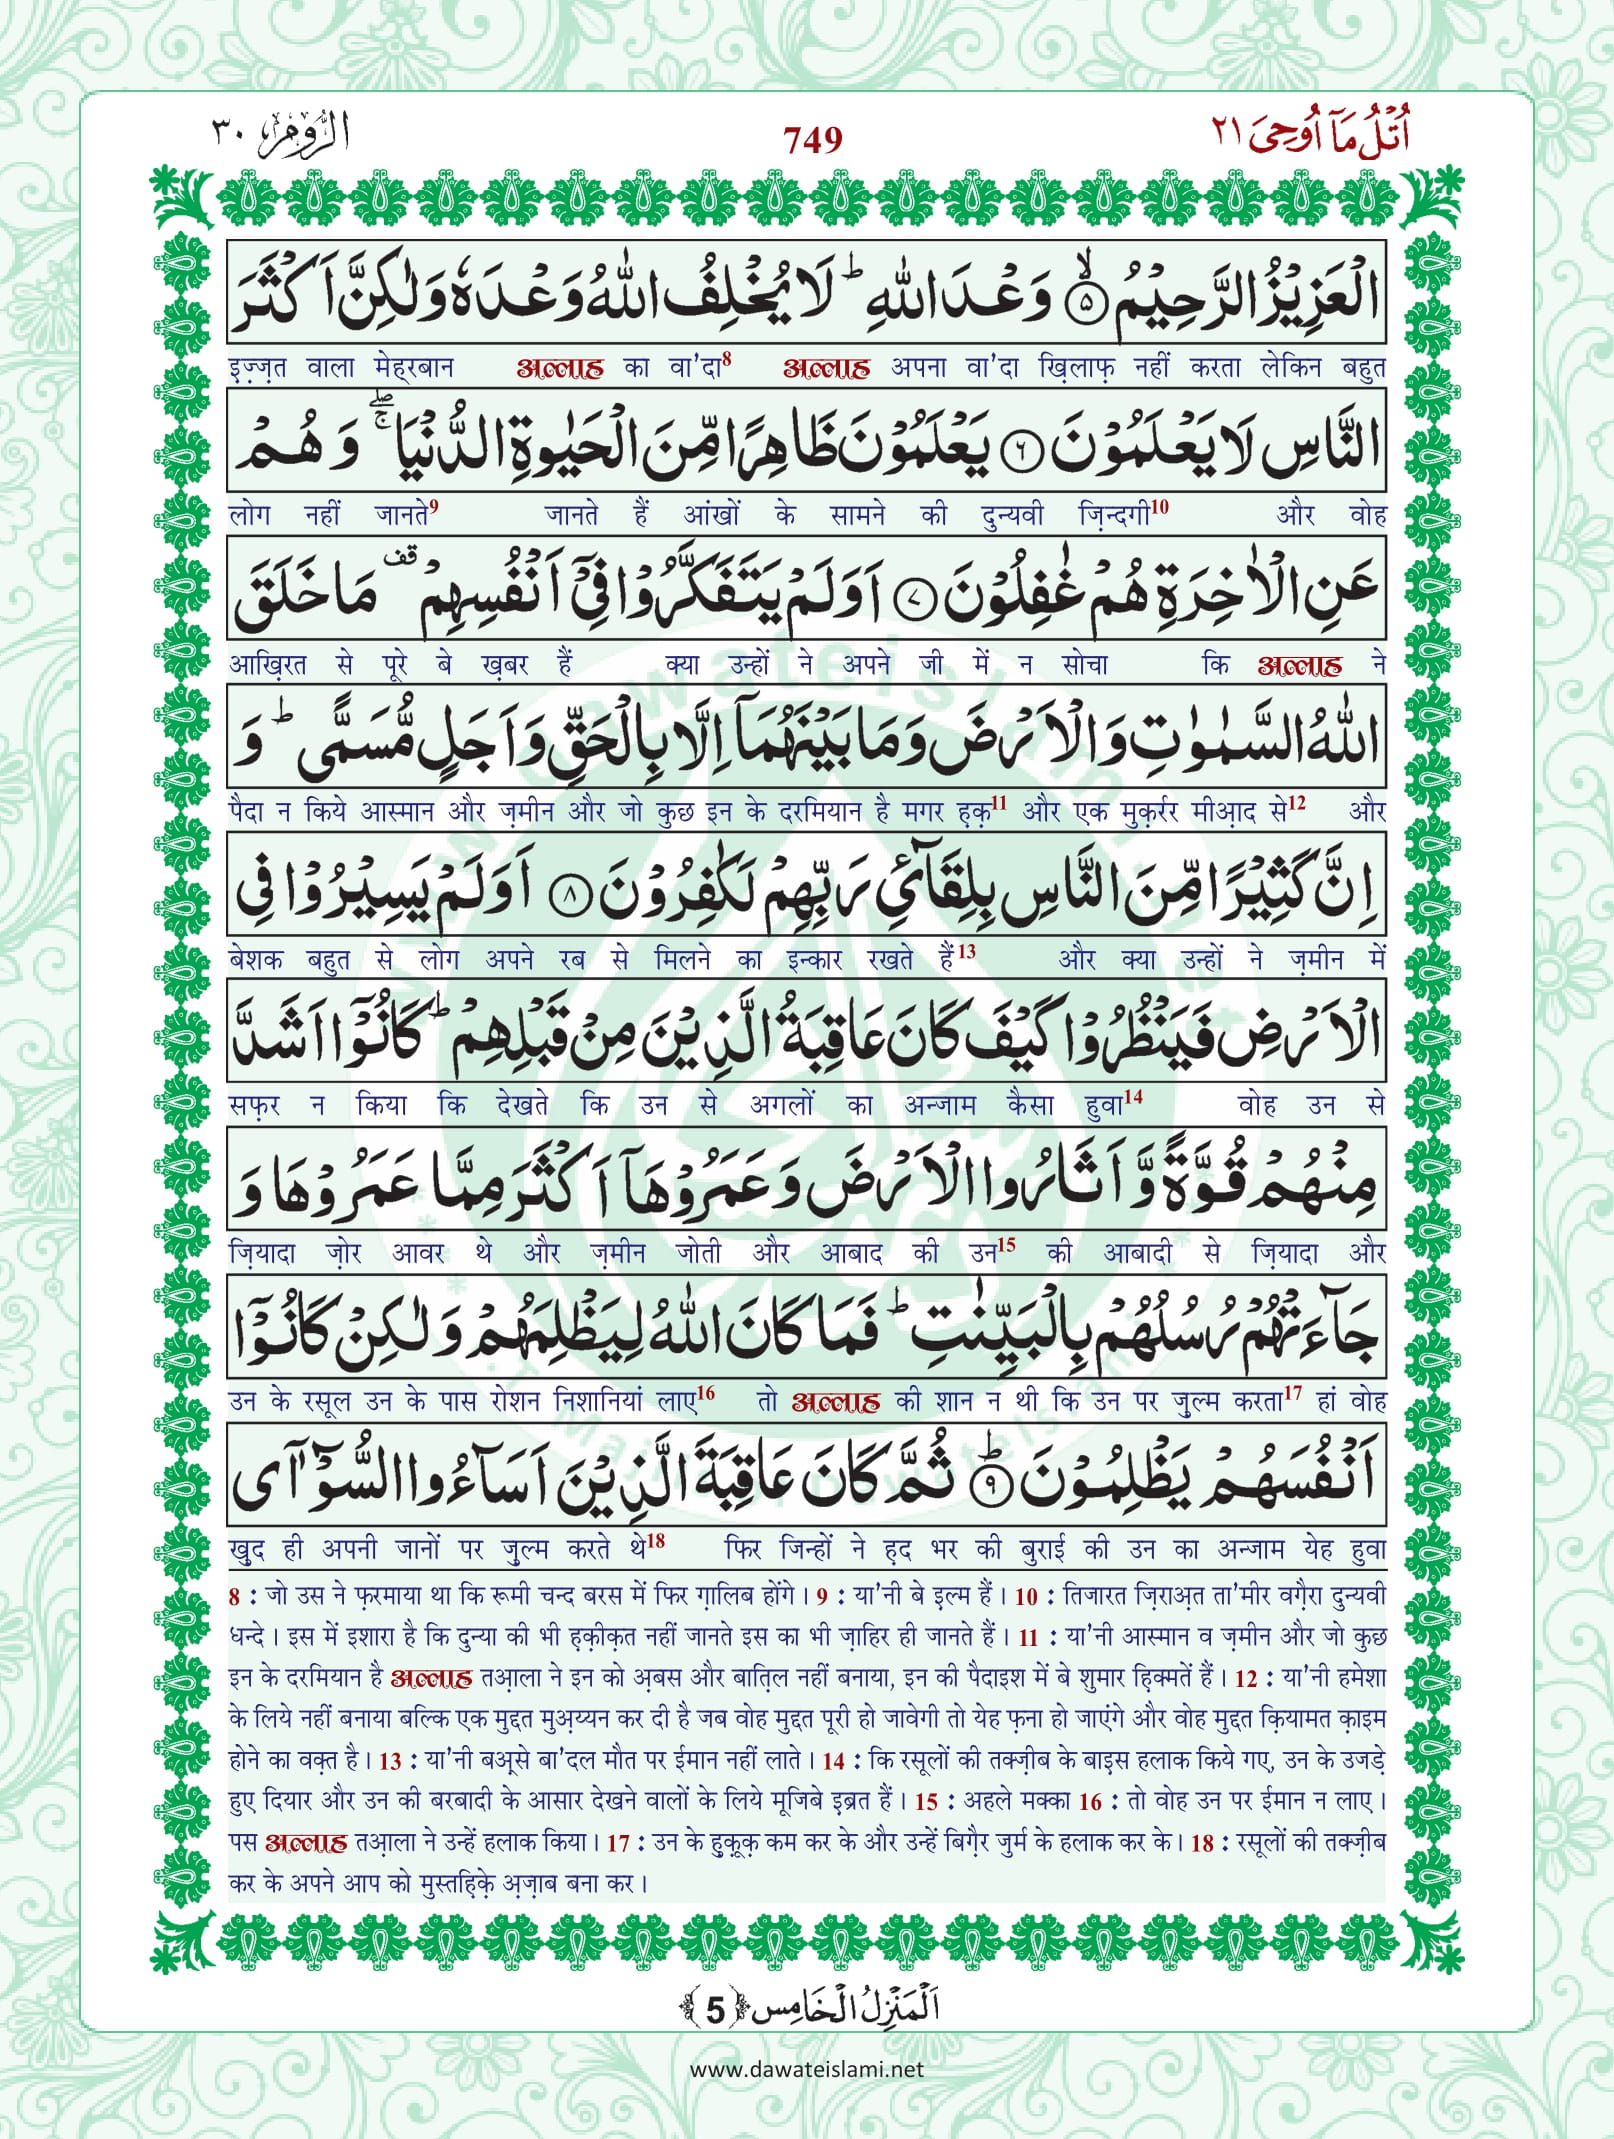 اُتْلُ مَآ اُوْحِیَ ٢١ 749 الرُّوْم ٣٠
الْعَزِیْزُ الرَّحِیْمُ ۙ﴿۵﴾ وَعْدَ اللّٰهِ ؕ لَا یُخْلِفُ اللّٰهُ وَعْدَهٗ وَلٰكِنَّ اَكْثَرَ
इज़्ज़त वाला मेह्‌रबान अल्लाह का वा'दा8 अल्लाह अपना वा'दा ख़िलाफ़ नहीं करता लेकिन बहुत
النَّاسِ لَا یَعْلَمُوْنَ ﴿۶﴾ یَعْلَمُوْنَ ظَاهِرًا مِّنَ الْحَیٰوةِ الدُّنْیَا ۚۖ وَهُمْ
लोग नहीं जानते9 जानते हैं आंखों के सामने की दुन्यवी ज़िन्दगी10 और वोह
عَنِ الْاٰخِرَةِ هُمْ غٰفِلُوْنَ ﴿۷﴾ اَوَلَمْ یَتَفَكَّرُوْا فِیْۤ اَنْفُسِهِمْ ۫ مَا خَلَقَ
आख़िरत से पूरे बे ख़बर हैं क्या उन्हों ने अपने जी में न सोचा कि अल्लाह ने
اللّٰهُ السَّمٰوٰتِ وَالْاَرْضَ وَمَا بَیْنَهُمَاۤ اِلَّا بِالْحَقِّ وَاَجَلٍ مُّسَمًّی ؕ وَ
पैदा न किये आस्मान और ज़मीन और जो कुछ इन के दरमियान है मगर ह़क़11 और एक मुक़र्रर मीआ़द से12 और
اِنَّ كَثِیْرًا مِّنَ النَّاسِ بِلِقَآئِ رَبِّهِمْ لَكٰفِرُوْنَ ﴿۸﴾ اَوَلَمْ یَسِیْرُوْا فِی
बेशक बहुत से लोग अपने रब से मिलने का इन्कार रखते हैं13 और क्या उन्हों ने ज़मीन में
الْاَرْضِ فَیَنْظُرُوْا كَیْفَ كَانَ عَاقِبَةُ الَّذِیْنَ مِنْ قَبْلِهِمْ ؕ كَانُوْۤا اَشَدَّ
सफ़र न किया कि देखते कि उन से अगलों का अन्जाम कैसा हुवा14 वोह उन से
مِنْهُمْ قُوَّةً وَّاَثَارُوا الْاَرْضَ وَعَمَرُوْهَاۤ اَكْثَرَ مِمَّا عَمَرُوْهَا وَ
ज़ियादा ज़ोर आवर थे और ज़मीन जोती और आबाद की उन15 की आबादी से ज़ियादा और
جَآءَتْهُمْ رُسُلُهُمْ بِالْبَیِّنٰتِ ؕ فَمَا كَانَ اللّٰهُ لِیَظْلِمَهُمْ وَلٰكِنْ كَانُوْۤا
उन के रसूल उन के पास रोशन निशानियां लाए16 तो अल्लाह की शान न थी कि उन पर ज़ुल्म करता17 हां वोह
اَنْفُسَهُمْ یَظْلِمُوْنَ ؕ﴿۹﴾ ثُمَّ كَانَ عَاقِبَةَ الَّذِیْنَ اَسَآءُوا السُّوْٓاٰۤی
ख़ुद ही अपनी जानों पर ज़ुल्म करते थे18 फिर जिन्हों ने ह़द भर की बुराई की उन का अन्जाम येह हुवा
8 : जो उस ने फ़रमाया था कि रूमी चन्द बरस में फिर ग़ालिब होंगे। 9 : या'नी बे इल्म हैं। 10 : तिजारत ज़िराअ़त ता'मीर वग़ैरा दुन्यवी
धन्दे। इस में इशारा है कि दुन्या की भी ह़क़ीक़त नहीं जानते इस का भी ज़ाहिर ही जानते हैं। 11 : या'नी आस्मान व ज़मीन और जो कुछ
इन के दरमियान है अल्लाह तआ़ला ने इन को अ़बस और बात़िल नहीं बनाया, इन की पैदाइश में बे शुमार ह़िक्मतें हैं। 12 : या'नी हमेशा
के लिये नहीं बनाया बल्कि एक मुद्दत मुअ़य्यन कर दी है जब वोह मुद्दत पूरी हो जावेगी तो येह फ़ना हो जाएंगे और वोह मुद्दत क़ियामत क़ाइम
होने का वक़्त है। 13 : या'नी बअ़्से बा'दल मौत पर ईमान नहीं लाते। 14 : कि रसूलों की तक्ज़ीब के बाइस हलाक किये गए, उन के उजड़े
हुए दियार और उन की बरबादी के आसार देखने वालों के लिये मूजिबे इब्रत हैं। 15 : अहले मक्का 16 : तो वोह उन पर ईमान न लाए।
पस अल्लाह तआ़ला ने उन्हें हलाक किया। 17 : उन के ह़ुक़ूक़ कम कर के और उन्हें बिग़ैर जुर्म के हलाक कर के। 18 : रसूलों की तक्ज़ीब
कर के अपने आप को मुस्तह़िक़े अ़ज़ाब बना कर।
اَلْمَنْزِلُ الْخَامِس ﴿5﴾
www.dawateislami.net